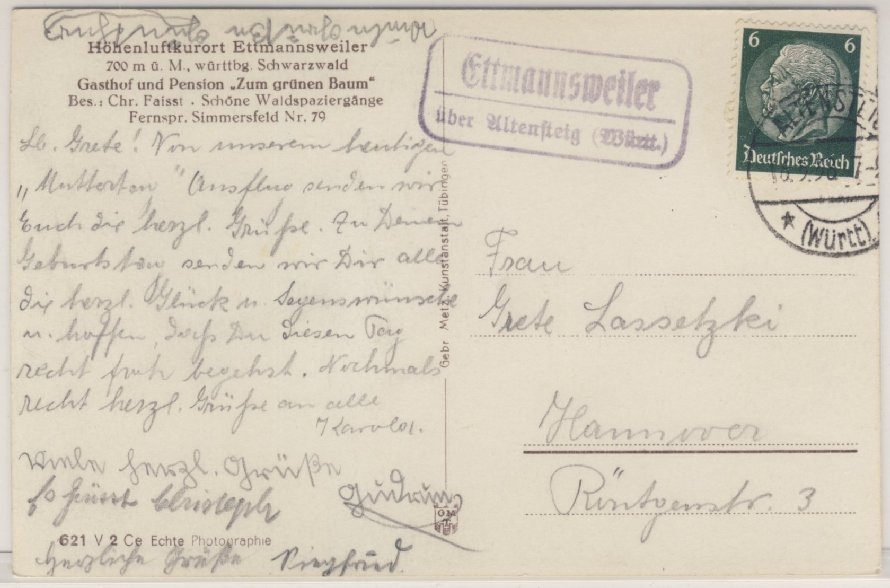 Höhenluftkurort Ettmannsweiler
700 m ü. M., württbg. Schwarzwald
Gasthof und Pension „Zum grünen Baum“
Bes.: Chr. Faisst · Schöne Waldspaziergänge
Fernspr. Simmersfeld Nr. 79
Lb. Grete! Von unserem heutigen
„Muttertag“ Ausflug senden wir
Euch die herzl. Grüße. Zu Deinem
Geburtstag senden wir Dir alle
die herzl. Glück u. Segenswünsche
u. hoffen daß Du diesen Tag
recht froh begehst. Nochmals
recht herzl. Grüße an alle
Viele herzl. Grüße
Gudrun
Es grüsst Christoph
621 V 2 Ce Echte Photographie
Herzliche Grüße Siegfried.
Gebr. Metz, Kunstanstalt, Tübingen
Ettmannsweiler
über Altensteig (Württ.)
6 6
Deutsches Reich
ALTENSTEIG
(Württ)
Frau
Grete Lassetzki
Hannover
Röntgenstr. 3